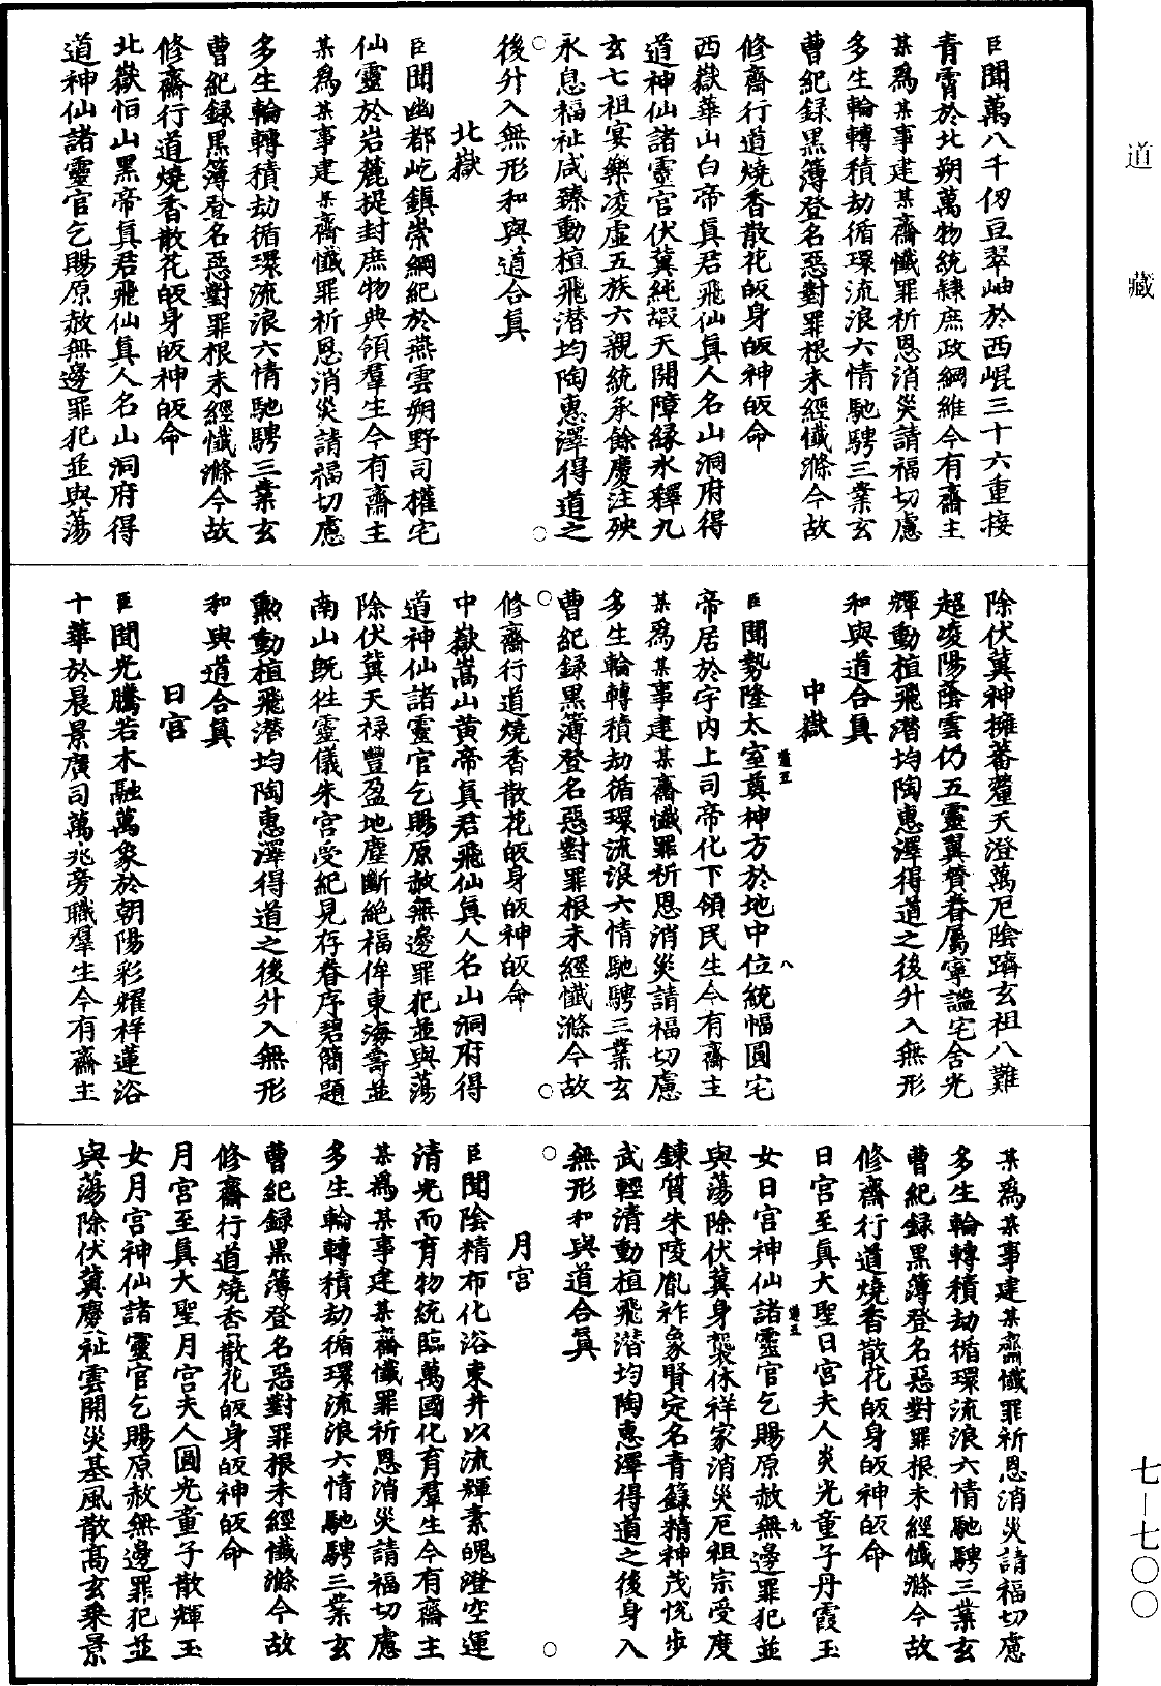 道藏
七—七〇〇
臣聞萬八千仞亘翠岫於西崐三十六重接
青霄於北朔萬物統隷庶政綱維今有齋主
某爲某事建某齋懺罪祈恩消災請福切慮
多生輪轉積劫循環流浪六情馳騁三業玄
曹紀録黑簿登名惡對罪根未經懺滌今故
修齋行道燒香散花皈身皈神皈命
西嶽華山白帝真君飛仙真人名山洞府得
道神仙諸靈官伏冀純嘏天開障縁氷釋九
玄七祖宴樂凌虛五族六親統承餘慶注殃
永息福祉咸臻動植飛潛均陶惠澤得道之
後升入無形和與道合真
北嶽
臣聞幽都屹鎮崇綱紀於燕雲朔野司權宅
仙靈於岩麓提封庶物典領羣生今有齋主
某爲某事建某齋懺罪祈恩消災請福切慮
多生輪轉積劫循環流浪六情馳騁三業玄
曹紀録黑簿登名惡對罪根未經懺滌今故
修齋行道燒香散花皈身皈神皈命
北嶽恒山黑帝真君飛仙真人名山洞府得
道神仙諸靈官乞賜原赦無邊罪犯並與蕩
除伏冀神擁蕃釐天澄萬厄陰躋玄祖八難
超凌陽蔭雲仍五靈翼贊眷屬寧謐宅舍光
輝動植飛潛均陶惠澤得道之後升入無形
和與道合真
中嶽
臣聞勢隆太室奠神方於地中位統幅圓宅
帝居於宇内上司帝化下領民生今有齋主
某爲某事建某齋懺罪祈恩消災請福切慮
多生輪轉積劫循環流浪六情馳騁三業玄
曹紀録黑簿登名惡對罪根未經懺滌今故
修齋行道燒香散花皈身皈神皈命
中嶽嵩山黄帝真君飛仙真人名山洞府得
道神仙諸靈官乞賜原赦無邊罪犯並與蕩
除伏冀天禄豐盈地塵斷絶福侔東海壽並
南山既徃靈儀朱宮受紀見存眷序碧簡題
勲動植飛潛均陶惠澤得道之後升入無形
和與道合真
日宮
臣聞光騰若木融萬象於朝陽彩耀祥蓮浴
十華於晨景廣司萬兆旁職羣生今有齋主
某爲某事建某齋懺罪祈恩消災請福切慮
多生輪轉積劫循環流浪六情馳騁三業玄
曹紀録黑簿登名惡對罪根未經懺滌今故
修齋行道燒香散花皈身皈神皈命
日宮至真大聖日宮夫人炎光童子丹霞玉
女日宮神仙諸靈官乞賜原赦無邊罪犯並
與蕩除伏冀身襲休祥家消災厄祖宗受度
鍊質朱陵胤祚象賢定名青籙精神茂悦步
武輕清動植飛潛均陶惠澤得道之後身入
無形和與道合真
月宮
臣聞陰精布化浴東井以流輝素魄澄空運
清光而育物統臨萬國化育羣生今有齋主
某爲某事建某齋懺罪祈恩消災請福切慮
多生輪轉積劫循環流浪六情馳騁三業玄
曹紀録黑簿登名惡對罪根未經懺滌今故
修齋行道燒香散花皈身皈神皈命
月宮至真大聖月宮夫人圓光童子散輝玉
女月宮神仙諸靈官乞賜原赦無邊罪犯並
與蕩除伏冀慶祉雲開災基風散高玄乘景